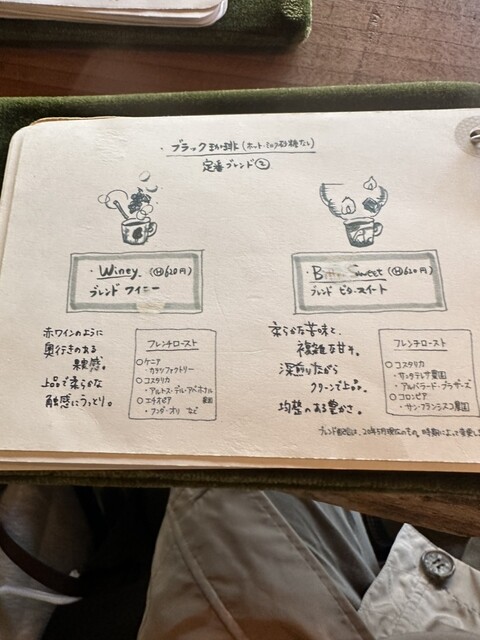 ・ブラック珈琲(ホット・ミルク砂糖なし)
定番ブレンド②
・Winey (Ⓗ620円)
ブレンド ワイニー
赤ワインのように
奥行きのある
果実感。
上品で柔らかな
触感にうっとり。
フレンチロースト
○ケニア
・カラツファクトリー
○コスタリカ
・アルトス・デル・アベホナル
農園
○エチオピア
・ブンダ・オリ など
・Bitter Sweet (Ⓗ620円)
ブレンド ビタースイート
柔らかな苦味と、
複雑な甘さ。
深煎りながら
クリーンで上品。
均整のある豊かさ。
フレンチロースト
○コスタリカ
・サンタテレサ農園
・アルバラード・ブラザーズ
○コロンビア
・サン・フランシスコ農園
ブレンド配合は、20年5月現在のもの。時期によって変更し